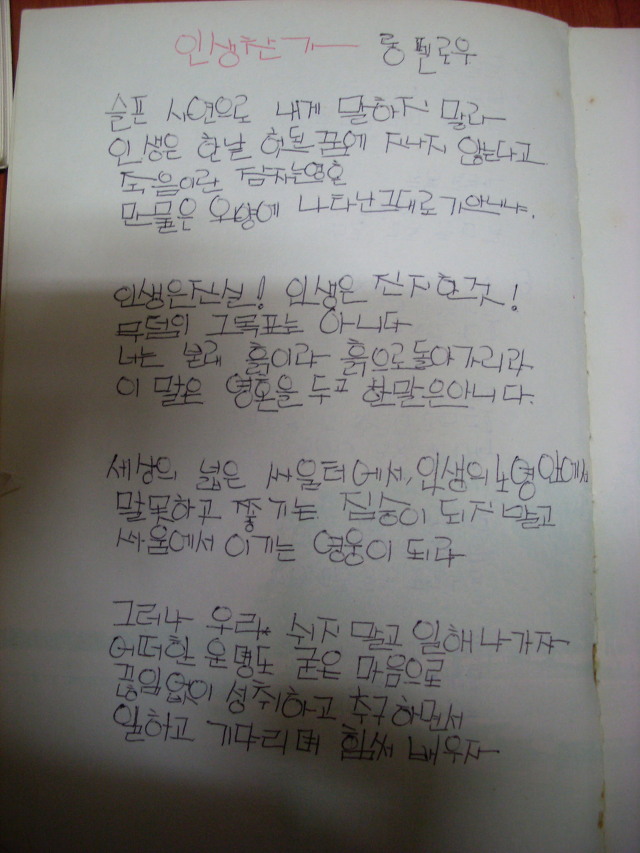 인생찬가 롱펠로우
슬픈 사연으로 내게 말하지 말라
인생은 한날 허된 꿈에 지나지 않는다고
죽음이란 잠자는영혼
만물은 외양에 나타난그대로가아니냐.
인생은진실! 인생은 진지한것!
무덤의 그목표는 아니다
너는 본래 흙이라 흙으로돌아가리라
이 말은 영혼을 두고 한말은아니다.
세상의 넓은 싸울터에서, 인생의 노영안에서
말못하고 쫓기는 짐승이 되지 말고
싸움에서 이기는 영웅이 되라
그러나 우리 쉬지 말고 일해나가자
어떠한 운명도 굳은 마음으로
끊임없이 성취하고 추구하면서
일하고 기다리며 힘써 배우자